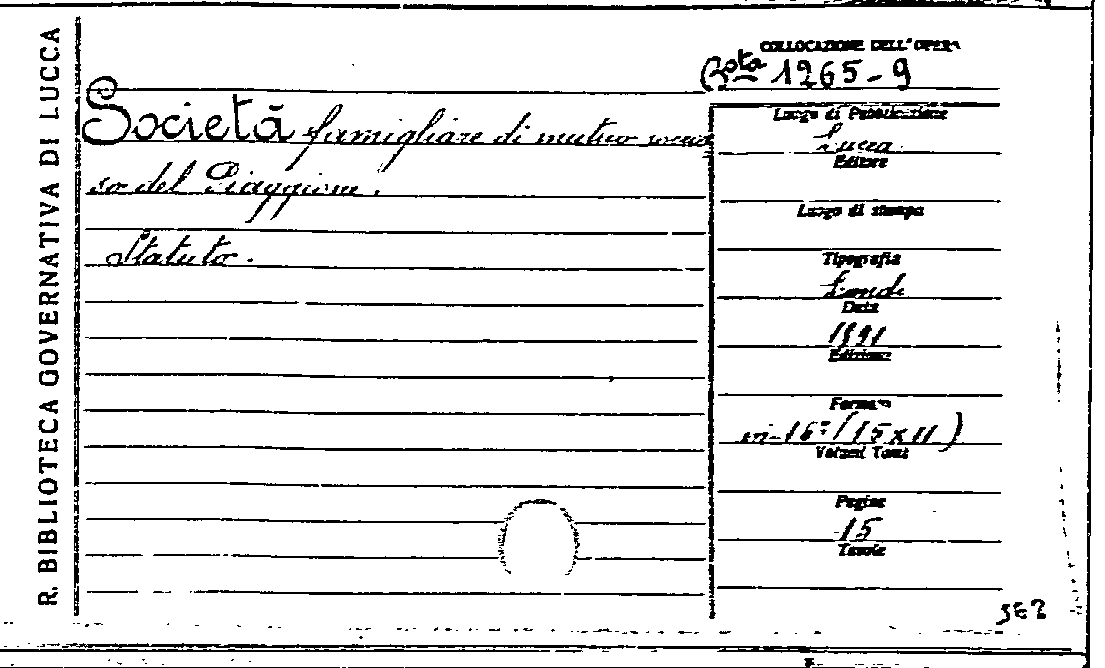 R. BIBLIOTECA GOVERNATIVA DI LUCCA
COLLOCAZIONE DELL'OPERA
Bsta 1265-9
Società famigliare di mutuo soccor
so del Piaggione.
Statuto.
Luogo di Pubblicazione
Lucca
Editore
Luogo di stampa
Tipografia
Landi
Data
1891
Edizione
Formato
in-16º (15x11)
Volumi Tomi
Pagine
15
Tavole